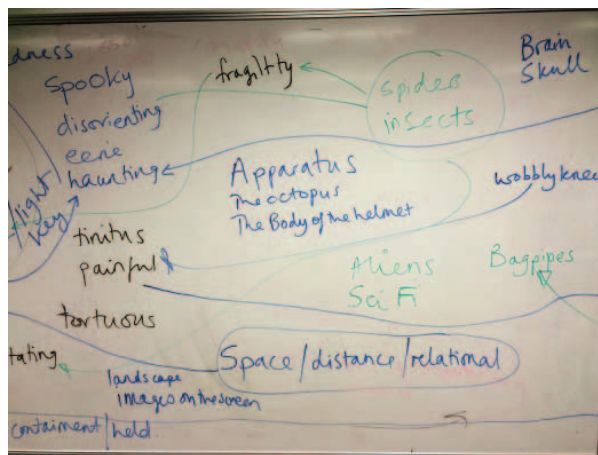 dness
Spooky
disorienting
eerie
haunting
flight
key
fragilty
Spider
insects
Brain
Skull
Apparatus
The octopus
The Body of the helmet
wobbly knee
tinitus
painful
tortuous
Aliens
Sci Fi
Bagpipes
tating
Space/distance/relational
landscape
images on the screen
contaiment/held